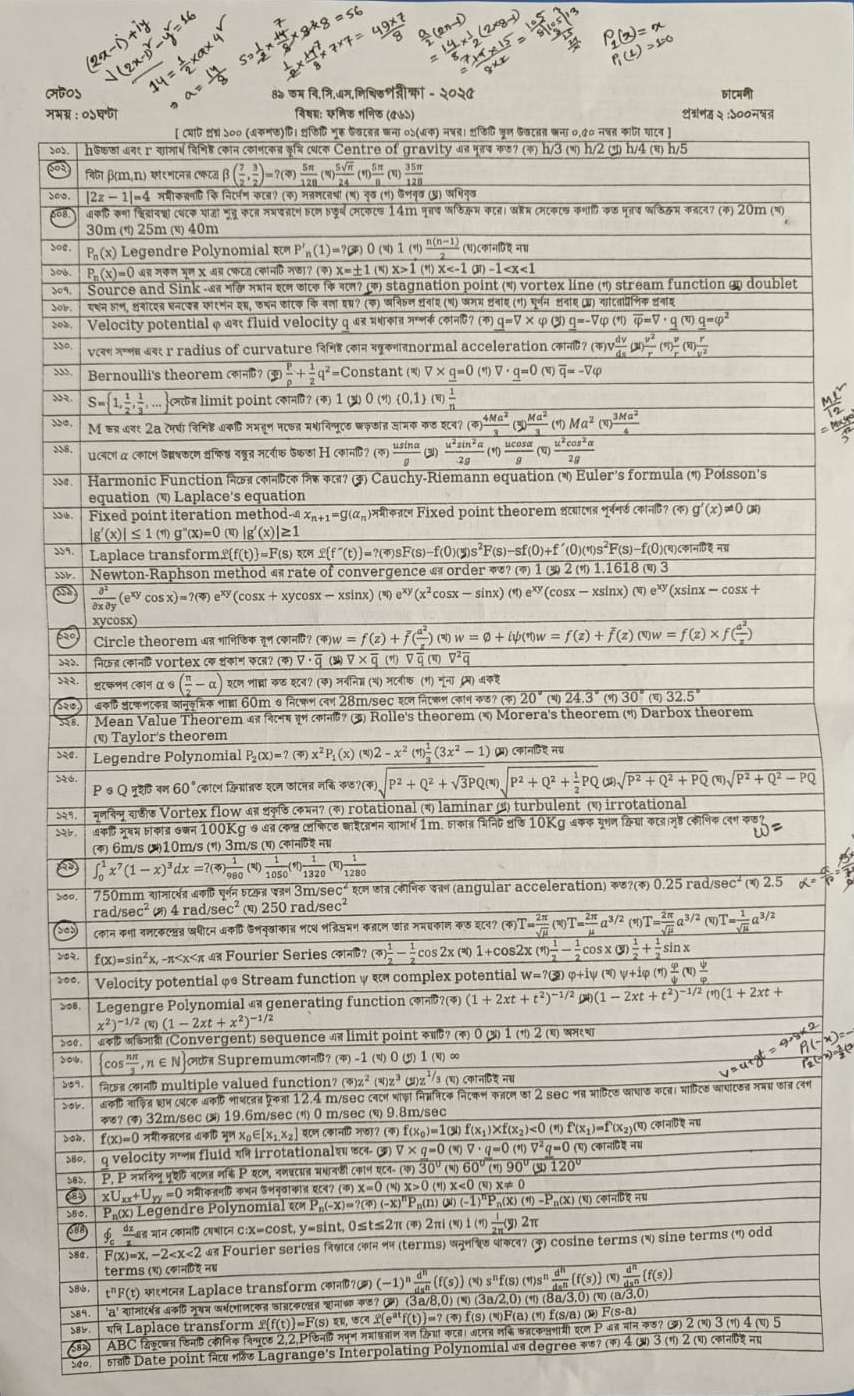 (2x-1)+iy
√(2x-1)²-y²=16
14=1/2×a×4²
⇒ a=14/8
P₁(x)=x
সেট০১
৪৯ তম বি.সি.এস.লিখিতপরীক্ষা - ২০২৫
চামেলী
সময় : ০১ঘন্টা
বিষয়: ফলিত গণিত (৫৬১)
প্রশ্নপত্র ২ :১০০নম্বর
[ মোট প্রশ্ন ১০০ (একশত)টি। প্রতিটি শুদ্ধ উত্তরের জন্য ০১(এক) নম্বর। প্রতিটি ভুল উত্তরের জন্য ০.৫০ নম্বর কাটা যাবে ]
১০১. hউচ্চতা এবং r ব্যাসার্ধ বিশিষ্ট কোন কোণকের ভূমি থেকে Centre of gravity এর দূরত্ব কত? (ক) h/3 (খ) h/2 (গ) h/4 (ঘ) h/5
১০২. বিটা β(m,n) ফাংশনের ক্ষেত্রে β(7/2, 3/2)=?(ক) 5π/128 (খ) 5√π/24 (গ) 5π/8 (ঘ) 35π/128
১০৩. |2z − 1|=4 সমীকরণটি কি নির্দেশ করে? (ক) সরলরেখা (খ) বৃত্ত (গ) উপবৃত্ত (ঘ) অধিবৃত্ত
১০৪. একটি কণা স্থিরাবস্থা থেকে যাত্রা শুরু করে সমত্বরণে চলে চতুর্থ সেকেন্ডে 14m দূরত্ব অতিক্রম করে। অষ্টম সেকেন্ডে কণাটি কত দূরত্ব অতিক্রম করবে? (ক) 20m (খ)
30m (গ) 25m (ঘ) 40m
১০৫. Pₙ(x) Legendre Polynomial হলে P'ₙ(1)=?(ক) 0 (খ) 1 (গ) n(n−1)/2 (ঘ)কোনটিই নয়
১০৬. Pₙ(x)=0 এর সকল মূল x এর ক্ষেত্রে কোনটি সত্য? (ক) x=±1 (খ) x>1 (গ) x<-1 (ঘ) -1<x<1
১০৭. Source and Sink -এর শক্তি সমান হলে তাকে কি বলে? (ক) stagnation point (খ) vortex line (গ) stream function (ঘ) doublet
১০৮. যখন চাপ, প্রবাহের ঘনত্বের ফাংশন হয়, তখন তাকে কি বলা হয়? (ক) অবিচল প্রবাহ (খ) অসম প্রবাহ (গ) ঘূর্ণন প্রবাহ (ঘ) ব্যারোট্রপিক প্রবাহ
১০৯. Velocity potential φ এবং fluid velocity q এর মধ্যকার সম্পর্ক কোনটি? (ক) q=∇ × φ (খ) q=-∇φ (গ) φ̅=∇ · q (ঘ) q=φ²
১১০. vবেগ সম্পন্ন এবং r radius of curvature বিশিষ্ট কোন বস্তুকণারnormal acceleration কোনটি? (ক)v dv/ds (খ) v²/r (গ) v/r (ঘ) r/v²
১১১. Bernoulli's theorem কোনটি? (ক) P/ρ + 1/2 q²=Constant (খ) ∇ × q=0 (গ) ∇ · q=0 (ঘ) q̅= -∇φ
১১২. S={1, 1/2, 1/3, ...}সেটের limit point কোনটি? (ক) 1 (খ) 0 (গ) {0,1} (ঘ) 1/n
১১৩. M ভর এবং 2a দৈর্ঘ্য বিশিষ্ট একটি সমরূপ দন্ডের মধ্যবিন্দুতে জড়তার ভ্রামক কত হবে? (ক) 4Ma²/3 (খ) Ma²/3 (গ) Ma² (ঘ) 3Ma²/4
১১৪. uবেগে α কোণে উল্লম্বতলে প্রক্ষিপ্ত বস্তুর সর্বোচ্চ উচ্চতা H কোনটি? (ক) usinα/g (খ) u²sin²α/2g (গ) ucosα/g (ঘ) u²cos²α/2g
১১৫. Harmonic Function নিচের কোনটিকে সিদ্ধ করে? (ক) Cauchy-Riemann equation (খ) Euler's formula (গ) Poisson's
equation (ঘ) Laplace's equation
১১৬. Fixed point iteration method-এ xₙ₊₁=g(αₙ)সমীকরণে Fixed point theorem প্রয়োগের পূর্বশর্ত কোনটি? (ক) g′(x)≠0 (খ)
|g′(x)| ≤ 1 (গ) g″(x)=0 (ঘ) |g′(x)|≥1
১১৭. Laplace transformℒ{f(t)}=F(s) হলে ℒ{f″(t)}=?(ক)sF(s)−f(0)(খ)s²F(s)−sf(0)+f′(0)(গ)s²F(s)−f(0)(ঘ)কোনটিই নয়
১১৮. Newton-Raphson method এর rate of convergence এর order কত? (ক) 1 (খ) 2 (গ) 1.1618 (ঘ) 3
১১৯. ∂²/∂x∂y (eˣʸ cos x)=?(ক) eˣʸ(cosx + xycosx − xsinx) (খ) eˣʸ(x²cosx − sinx) (গ) eˣʸ(cosx − xsinx) (ঘ) eˣʸ(xsinx − cosx +
xycosx)
১২০. Circle theorem এর গাণিতিক রূপ কোনটি? (ক)w = f(z) + f̅(a²/z) (খ) w = ∅ + iψ(গ)w = f(z) + f̅(z) (ঘ)w = f(z) × f(a²/z)
১২১. নিচের কোনটি vortex কে প্রকাশ করে? (ক) ∇ · q̅ (খ) ∇ × q̅ (গ) ∇ q̅ (ঘ) ∇²q̅
১২২. প্রক্ষেপণ কোণ α ও (π/2 − α) হলে পাল্লা কত হবে? (ক) সর্বনিম্ন (খ) সর্বোচ্চ (গ) শূন্য (ঘ) একই
১২৩. একটি প্রক্ষেপকের আনুভূমিক পাল্লা 60m ও নিক্ষেপ বেগ 28m/sec হলে নিক্ষেপ কোণ কত? (ক) 20° (খ) 24.3° (গ) 30° (ঘ) 32.5°
১২৪. Mean Value Theorem এর বিশেষ রূপ কোনটি? (ক) Rolle's theorem (খ) Morera's theorem (গ) Darbox theorem
(ঘ) Taylor's theorem
১২৫. Legendre Polynomial P₂(x)=? (ক) x²P₁(x) (খ)2 - x² (গ)1/3 (3x² − 1) (ঘ) কোনটিই নয়
১২৬. P ও Q দুইটি বল 60°কোণে ক্রিয়ারত হলে তাদের লব্ধি কত?(ক)√(P² + Q² + √3PQ)(খ)√(P² + Q² + 1/2 PQ) (গ)√(P² + Q² + PQ) (ঘ)√(P² + Q² − PQ)
১২৭. মূলবিন্দু ব্যতীত Vortex flow এর প্রকৃতি কেমন? (ক) rotational (খ) laminar (গ) turbulent (ঘ) irrotational
১২৮. একটি সুষম চাকার ওজন 100Kg ও এর কেন্দ্র প্রেক্ষিতে জাইরেশন ব্যাসার্ধ 1m. চাকার মিনিট প্রতি 10Kg একক যুগল ক্রিয়া করে।সৃষ্ট কৌণিক বেগ কত?
(ক) 6m/s (খ)10m/s (গ) 3m/s (ঘ) কোনটিই নয়
১২৯. ∫₀¹ x⁷(1 − x)³dx =?(ক)1/980 (খ) 1/1050 (গ)1/1320 (ঘ)1/1280
১৩০. 750mm ব্যাসার্ধের একটি ঘূর্ণন চক্রের ত্বরণ 3m/sec² হলে তার কৌণিক ত্বরণ (angular acceleration) কত?(ক) 0.25 rad/sec² (খ) 2.5
rad/sec² (গ) 4 rad/sec² (ঘ) 250 rad/sec²
১৩১. কোন কণা বলকেন্দ্রের অধীনে একটি উপবৃত্তাকার পথে পরিভ্রমণ করলে তার সময়কাল কত হবে? (ক)T=2π/√μ (খ)T=2π/μ a^3/2 (গ)T=2π/√μ a^3/2 (ঘ)T=1/√μ a^3/2
১৩২. f(x)=sin²x, -π<x<π এর Fourier Series কোনটি? (ক)1/2 − 1/2 cos 2x (খ) 1+cos2x (গ)1/2 − 1/2 cos x (ঘ) 1/2 + 1/2 sin x
১৩৩. Velocity potential φও Stream function ψ হলে complex potential w=?(ক) φ+iψ (খ) ψ+iφ (গ) φ/ψ (ঘ) ψ/φ
১৩৪. Legengre Polynomial এর generating function কোনটি?(ক) (1 + 2xt + t²)^−1/2 (খ)(1 − 2xt + t²)^−1/2 (গ)(1 + 2xt +
x²)^−1/2 (ঘ) (1 − 2xt + x²)^−1/2
১৩৫. একটি অভিসারী (Convergent) sequence এর limit point কয়টি? (ক) 0 (খ) 1 (গ) 2 (ঘ) অসংখ্য
১৩৬. {cos nπ/3, n ∈ ℕ}সেটের Supremumকোনটি? (ক) -1 (খ) 0 (গ) 1 (ঘ) ∞
১৩৭. নিচের কোনটি multiple valued function? (ক)z² (খ)z³ (গ)z^1/3 (ঘ) কোনটিই নয়
১৩৮. একটি বাড়ির ছাদ থেকে একটি পাথরের টুকরা 12.4 m/sec বেগে খাড়া নিম্নদিকে নিক্ষেপ করলে তা 2 sec পর মাটিতে আঘাত করে। মাটিতে আঘাতের সময় তার বেগ
কত? (ক) 32m/sec (খ) 19.6m/sec (গ) 0 m/sec (ঘ) 9.8m/sec
১৩৯. f(x)=0 সমীকরণের একটি মূল x₀∈[x₁,x₂] হলে কোনটি সত্য? (ক) f(x₀)=1(খ) f(x₁)×f(x₂)<0 (গ) f′(x₁)=f′(x₂)(ঘ) কোনটিই নয়
১৪০. q velocity সম্পন্ন fluid যদি irrotationalহয় তবে- (ক) ∇ × q=0 (খ) ∇ · q=0 (গ) ∇²q=0 (ঘ) কোনটিই নয়
১৪১. P, P সমবিন্দু দুইটি বলের লব্ধি P হলে, বলদ্বয়ের মধ্যবর্তী কোণ হবে- (ক) 30⁰ (খ) 60⁰ (গ) 90⁰ (ঘ) 120⁰
১৪২. xUₓₓ+Uᵧᵧ =0 সমীকরণটি কখন উপবৃত্তাকার হবে? (ক) x=0 (খ) x>0 (গ) x<0 (ঘ) x≠ 0
১৪৩. Pₙ(x) Legendre Polynomial হলে Pₙ(-x)=?(ক) (-x)ⁿPₙ(n) (খ) (-1)ⁿPₙ(x) (গ) -Pₙ(x) (ঘ) কোনটিই নয়
১৪৪. ∮c dz/z এর মান কোনটি যেখানে c:x=cost, y=sint, 0≤t≤2π (ক) 2πi (খ) i (গ) 1/2π (ঘ) 2π
১৪৫. F(x)=x, −2<x<2 এর Fourier series বিস্তারে কোন পদ (terms) অনুপস্থিত থাকবে? (ক) cosine terms (খ) sine terms (গ) odd
terms (ঘ) কোনটিই নয়
১৪৬. tⁿF(t) ফাংশনের Laplace transform কোনটি?(ক) (−1)ⁿ dⁿ/dsⁿ {f(s)} (খ) sⁿf(s) (গ)sⁿ dⁿ/dsⁿ {f(s)} (ঘ) dⁿ/dsⁿ {f(s)}
১৪৭. 'a' ব্যাসার্ধের একটি সুষম অর্ধগোলকের ভারকেন্দ্রের স্থানাঙ্ক কত? (ক) (3a/8,0) (খ) (3a/2,0) (গ) (8a/3,0) (ঘ) (a/3,0)
১৪৮. যদি Laplace transform ℒ{f(t)}=F(s) হয়, তবে ℒ{eᵃᵗf(t)}=? (ক) f(s) (খ)F(a) (গ) f(s/a) (ঘ) F(s-a)
১৪৯. ABC ত্রিভুজের তিনটি কৌণিক বিন্দুতে 2,2,Pতিনটি সদৃশ সমান্তরাল বল ক্রিয়া করে। এদের লব্ধি ভরকেন্দ্রগামী হলে P এর মান কত? (ক) 2 (খ) 3 (গ) 4 (ঘ) 5
১৫০. চারটি Date point নিয়ে গঠিত Lagrange's Interpolating Polynomial এর degree কত? (ক) 4 (খ) 3 (গ) 2 (ঘ) কোনটিই নয়